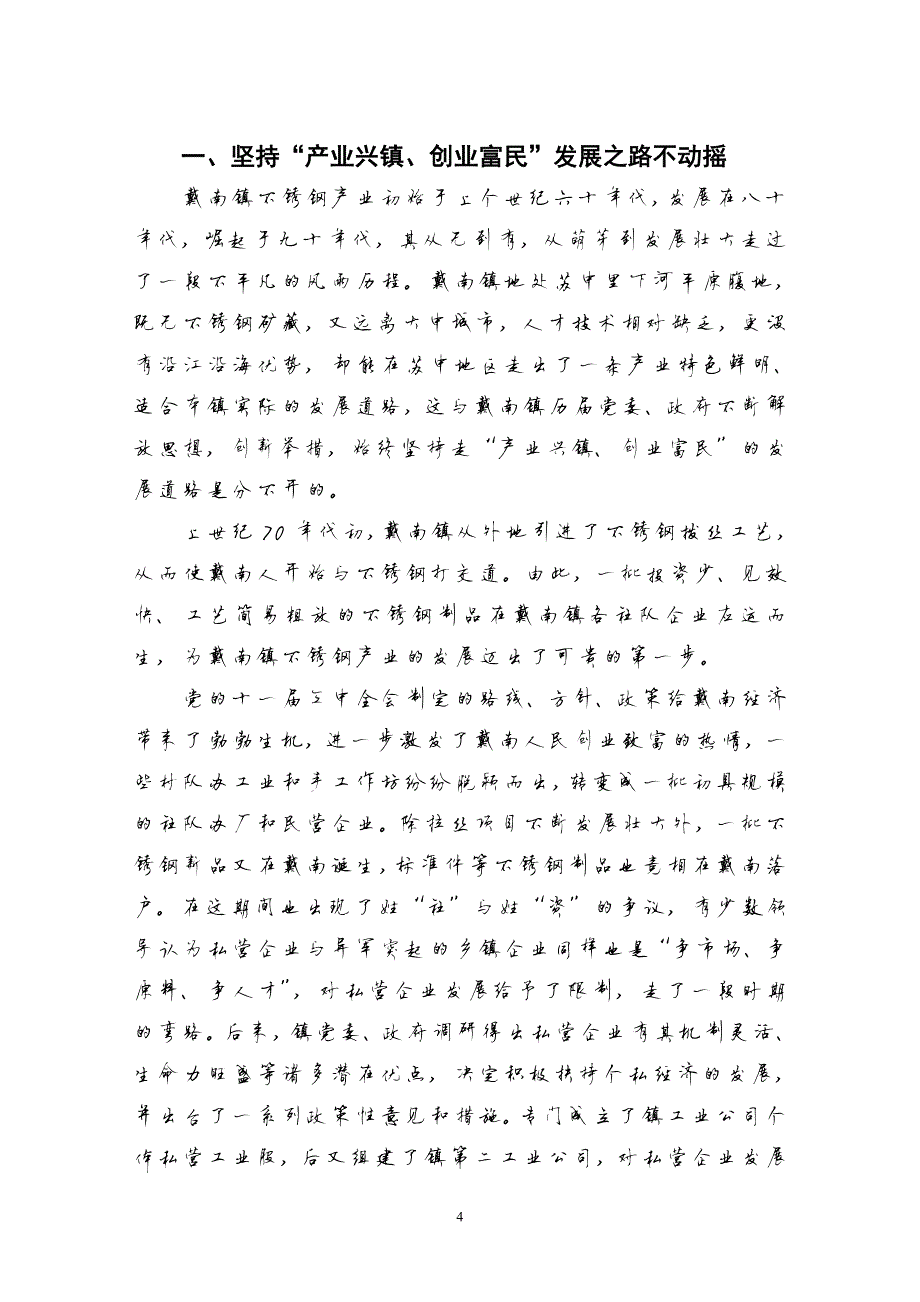 一、坚持“产业兴镇、创业富民”发展之路不动摇
戴南镇不锈钢产业初始于上个世纪六十年代，发展在八十
年代，崛起于九十年代，其从无到有，从萌芽到发展壮大走过
了一段不平凡的风雨历程。戴南镇地处苏中里下河平原腹地，
既无不锈钢矿藏，又远离大中城市，人才技术相对缺乏，更没
有沿江沿海优势，却能在苏中地区走出了一条产业特色鲜明、
适合本镇实际的发展道路，这与戴南镇历届党委、政府不断解
放思想，创新举措，始终坚持走“产业兴镇、创业富民”的发
展道路是分不开的。
上世纪70年代初，戴南镇从外地引进了不锈钢拔丝工艺，
从而使戴南人开始与不锈钢打交道。由此，一批投资少、见效
快、工艺简易粗放的不锈钢制品在戴南镇各社队企业应运而
生，为戴南镇不锈钢产业的发展迈出了可贵的第一步。
党的十一届三中全会制定的路线、方针、政策给戴南经济
带来了勃勃生机，进一步激发了戴南人民创业致富的热情，一
些村队办工业和手工作坊纷纷脱颖而出，转变成一批初具规模
的社队办厂和民营企业。除拉丝项目不断发展壮大外，一批不
锈钢新品又在戴南诞生，标准件等不锈钢制品业竞相在戴南落
户。在这期间业出现了姓“社”与姓“资”的争议，有少数领
导认为私营企业与异军突起的乡镇企业同样业是“争市场、争
原料、争人才”，对私营企业发展给予了限制，走了一段时期
的弯路。后来，镇党委、政府调研得出私营企业有其机制灵活、
生命力旺盛等诸多潜在优点，决定积极扶持个私经济的发展，
并出台了一系列政策性意见和措施。专门成立了镇工业公司个
体私营工业股，后又组建了镇第二工业公司，对私营企业发展
4